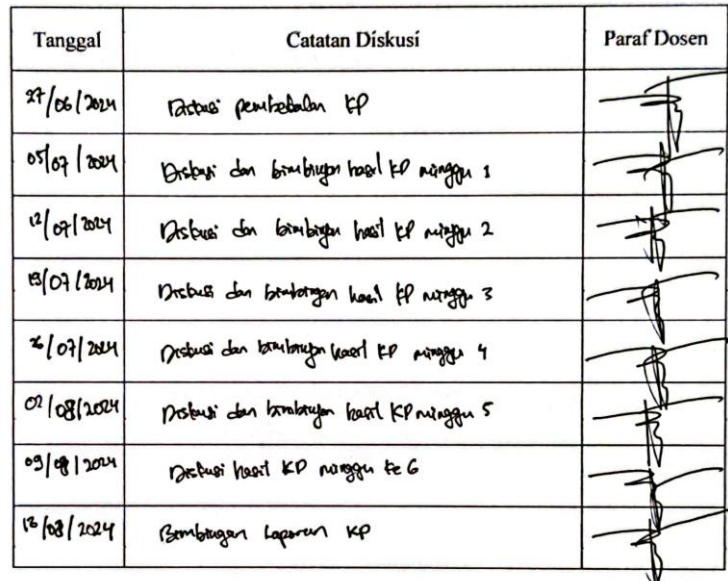 Tanggal Catatan Diskusi Paraf Dosen
27/06/2024 Diskusi pembekalan KP
05/07/2024 Diskusi dan bimbingan hasil KP minggu 1
12/07/2024 Diskusi dan bimbingan hasil KP minggu 2
19/07/2024 Diskusi dan bimbingan hasil KP minggu 3
26/07/2024 Diskusi dan bimbingan hasil KP minggu 4
02/08/2024 Diskusi dan bimbingan hasil KP minggu 5
09/08/2024 Diskusi hasil KP minggu ke 6
/08/2024 Bimbingan Laporan KP